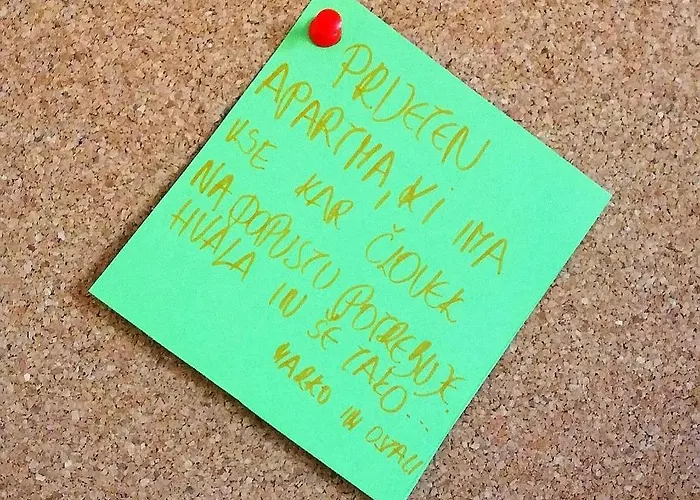 PRIJETEN
APARTMA, KI IMA
VSE KAR ČLOVEK
NA DOPUSTU POTREBUJE.
HVALA IN ŠE TAKO...
MARKO IN OSTALI